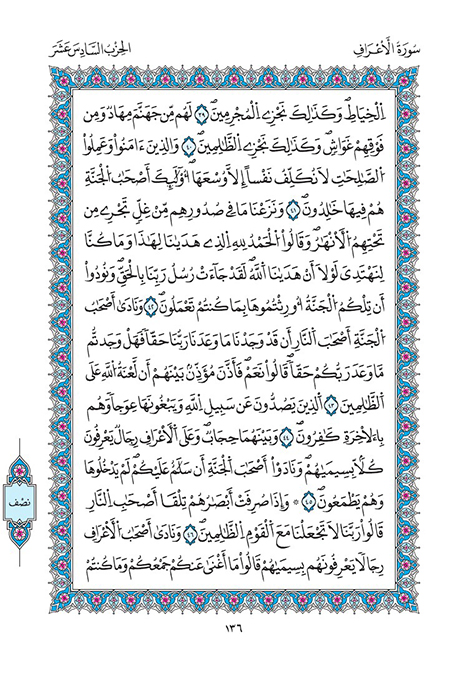 سورة الأعراف
الحزب السادس عشر
اِ۬لْخِيَاطِۖ وَكَذَٰلِكَ نَجْزِے اِ۬لْمُجْرِمِينَۖ ٣٩ لَهُم مِّن جَهَنَّمَ مِهَادٞ وَمِن
فَوْقِهِمْ غَوَاشٖۖ وَكَذَٰلِكَ نَجْزِے اِ۬لظَّٰلِمِينَۖ ٤٠ وَالذِينَ ءَامَنُواْ وَعَمِلُواْ
اُ۬لصَّٰلِحَٰتِ لَا نُكَلِّفُ نَفْساً اِلَّا وُسْعَهَآ أُوْلَٰٓئِكَ أَصْحَٰبُ اُ۬لْجَنَّةِ
هُمْ فِيهَا خَٰلِدُونَۖ ٤١ وَنَزَعْنَا مَا فِے صُدُورِهِم مِّنْ غِلّٖ تَجْرِے مِن
تَحْتِهِمُ اُ۬لَانْهَٰرُۖ وَقَالُواْ اُ۬لْحَمْدُ لِلهِ اِ۬لذِے هَد۪يٰنَا لِهَٰذَا وَمَا كُنَّا
لِنَهْتَدِيَ لَوْلَآ أَنْ هَد۪يٰنَا اَ۬للَّهُۖ لَقَدْ جَآءَتْ رُسُلُ رَبِّنَا بِالْحَقِّۖ وَنُودُوٓاْ
أَن تِلْكُمُ اُ۬لْجَنَّةُ أُورِثْتُمُوهَا بِمَا كُنتُمْ تَعْمَلُونَۖ ٤٢ وَنَاد۪يٰٓ أَصْحَٰبُ
اُ۬لْجَنَّةِ أَصْحَٰبَ اَ۬لنّ۪ارِ أَن قَدْ وَجَدْنَا مَا وَعَدَنَا رَبُّنَا حَقّاٗ فَهَلْ وَجَدتُّم
مَّا وَعَدَ رَبُّكُمْ حَقّاٗۖ قَالُواْ نَعَمْۖ فَأَذَّنَ مُؤَذِّنُۢ بَيْنَهُمُۥٓ أَن لَّعْنَةُ اُ۬للَّهِ عَلَي
اَ۬لظَّٰلِمِينَ ٤٣ اَ۬لذِينَ يَصُدُّونَ عَن سَبِيلِ اِ۬للَّهِ وَيَبْغُونَهَا عِوَجاٗ وَهُم
بِالَاخِرَةِ كَٰفِرُونَۖ ٤٤ وَبَيْنَهُمَا حِجَابٞۖ وَعَلَي اَ۬لَاعْرَافِ رِجَالٞ يَعْرِفُونَ
كُلَّاَۢ بِسِيم۪يٰهُمْۖ وَنَادَوَاْ اَصْحَٰبَ اَ۬لْجَنَّةِ أَن سَلَٰمٌ عَلَيْكُمْۖ لَمْ يَدْخُلُوهَا
وَهُمْ يَطْمَعُونَۖ ٤٥ وَإِذَا صُرِفَتَ اَبْصَٰرُهُمْ تِلْقَآءَ اصْحَٰبِ اِ۬لنّ۪ارِ
قَالُواْ رَبَّنَا لَا تَجْعَلْنَا مَعَ اَ۬لْقَوْمِ اِ۬لظَّٰلِمِينَۖ ٤٦ وَنَاد۪يٰٓ أَصْحَٰبُ اُ۬لَاعْرَافِ
رِجَالاٗ يَعْرِفُونَهُم بِسِيم۪يٰهُمْ قَالُواْ مَآ أَغْن۪يٰ عَنكُمْ جَمْعُكُمْ وَمَا كُنتُمْ
نصف
١٣٦